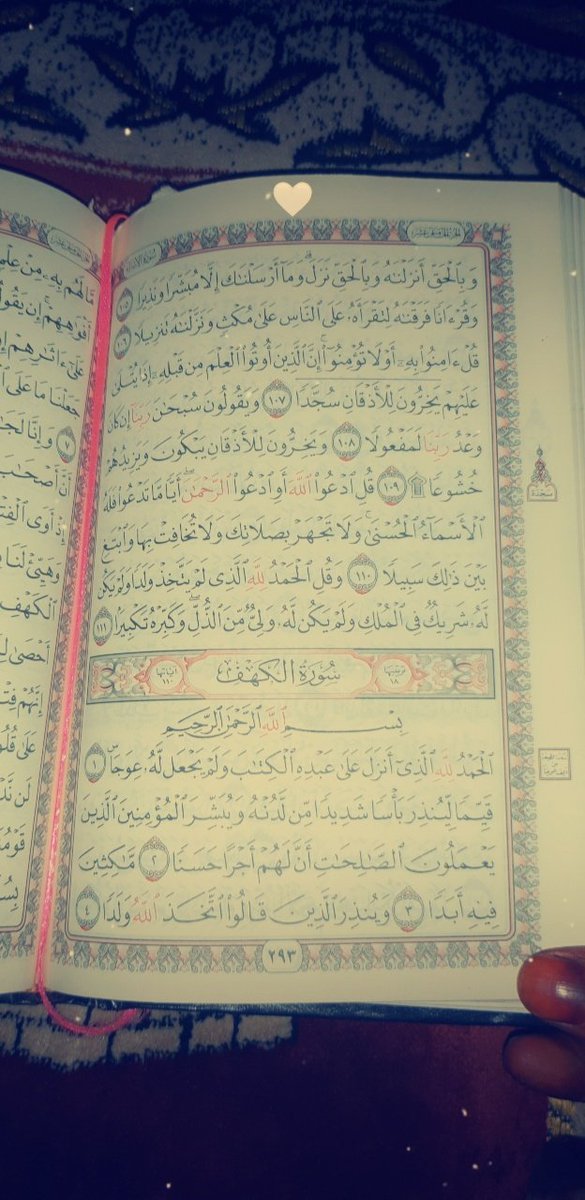 سُورَةُ الإِسْرَاءِ
الجزء الخامس عشر
وَبِٱلْحَقِّ أَنزَلْنَٰهُ وَبِٱلْحَقِّ نَزَلَ ۗ وَمَآ أَرْسَلْنَٰكَ إِلَّا مُبَشِّرًا وَنَذِيرًا ١٠٥
وَقُرْءَانًا فَرَقْنَٰهُ لِتَقْرَأَهُۥ عَلَى ٱلنَّاسِ عَلَىٰ مُكْثٍ وَنَزَّلْنَٰهُ تَنزِيلًا ١٠٦
قُلْ ءَامِنُوا۟ بِهِۦٓ أَوْ لَا تُؤْمِنُوٓا۟ ۚ إِنَّ ٱلَّذِينَ أُوتُوا۟ ٱلْعِلْمَ مِن قَبْلِهِۦٓ إِذَا يُتْلَىٰ
عَلَيْهِمْ يَخِرُّونَ لِلْأَذْقَانِ سُجَّدًا ١٠٧ وَيَقُولُونَ سُبْحَٰنَ رَبِّنَآ إِن كَانَ
وَعْدُ رَبِّنَا لَمَفْعُولًا ١٠٨ وَيَخِرُّونَ لِلْأَذْقَانِ يَبْكُونَ وَيَزِيدُهُمْ
خُشُوعًا ۩ ١٠٩ قُلِ ٱدْعُوا۟ ٱللَّهَ أَوِ ٱدْعُوا۟ ٱلرَّحْمَٰنَ ۖ أَيًّا مَّا تَدْعُوا۟ فَلَهُ
ٱلْأَسْمَآءُ ٱلْحُسْنَىٰ ۚ وَلَا تَجْهَرْ بِصَلَاتِكَ وَلَا تُخَافِتْ بِهَا وَٱبْتَغِ
بَيْنَ ذَٰلِكَ سَبِيلًا ١١٠ وَقُلِ ٱلْحَمْدُ لِلَّهِ ٱلَّذِى لَمْ يَتَّخِذْ وَلَدًا وَلَمْ يَكُن
لَّهُۥ شَرِيكٌ فِى ٱلْمُلْكِ وَلَمْ يَكُن لَّهُۥ وَلِىٌّ مِّنَ ٱلذُّلِّ ۖ وَكَبِّرْهُ تَكْبِيرًۢا ١١١
ترتيبها ١٨ سُورَةُ الكَهْفِ آياتها ١١٠
بِسْمِ ٱللَّهِ ٱلرَّحْمَٰنِ ٱلرَّحِيمِ
ٱلْحَمْدُ لِلَّهِ ٱلَّذِىٓ أَنزَلَ عَلَىٰ عَبْدِهِ ٱلْكِتَٰبَ وَلَمْ يَجْعَل لَّهُۥ عِوَجَا ۜ ١
قَيِّمًا لِّيُنذِرَ بَأْسًا شَدِيدًا مِّن لَّدُنْهُ وَيُبَشِّرَ ٱلْمُؤْمِنِينَ ٱلَّذِينَ
يَعْمَلُونَ ٱلصَّٰلِحَٰتِ أَنَّ لَهُمْ أَجْرًا حَسَنًا ٢ مَّٰكِثِينَ
فِيهِ أَبَدًا ٣ وَيُنذِرَ ٱلَّذِينَ قَالُوا۟ ٱتَّخَذَ ٱللَّهُ وَلَدًا ٤
٢٩٣
سجدة
مَّا لَهُم بِهِۦ مِنْ عِلْمٍ
أَفْوَٰهِهِمْ ۚ إِن يَقُولُو
عَلَىٰٓ ءَاثَٰرِهِمْ إِن
جَعَلْنَا مَا عَلَى ٱلْ
٧ وَإِنَّا لَجَٰ
أَنَّ أَصْحَٰبَ
إِذْ أَوَى ٱلْفِتْ
وَهَيِّئْ لَنَا
ٱلْكَهْفِ
أَحْصَىٰ لِ
إِنَّهُمْ فِتْ
عَلَىٰ قُلُو
لَن نَّدْ
قَوْمُنَ
بِسُ